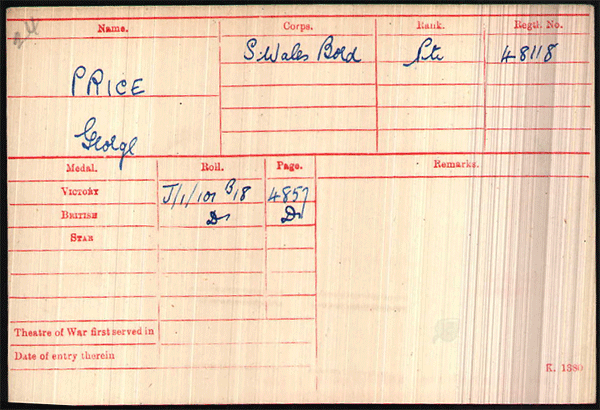 24
Name. Corps. Rank. Regtl. No.
S. Wales Bord Pte 48118
PRICE
George
Medal. Roll. Page. Remarks.
VICTORY J/1/101 B18 4857
BRITISH Do Do
STAR
Theatre of War first served in
Date of entry therein
K. 1380